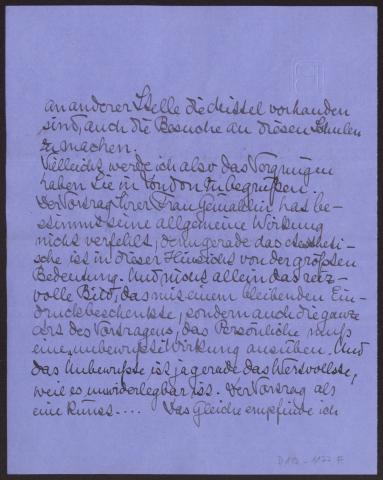 an anderer Stelle die Mittel vorhanden
sind, auch die Besuche an diesen Schulen
zu machen.
Vielleicht werde ich also das Vergnügen
haben Sie in London zu begrüßen.
Der Vortrag Ihrer Frau Gemahlin hat be-
stimmt seine allgemeine Wirkung
nicht verfehlt, denn gerade das Aestheti-
sche ist in dieser Hinsicht von der größten
Bedeutung. Und nicht allein das reiz-
volle Bild, das mit einem bleibenden Ein-
druck beschenkte, sondern auch die ganze
Art des Vortragens, das Persönliche muß
eine unbewußte Wirkung ausüben. Und
das Unbewußte ist ja gerade das Wertvollste,
weil es unwiderlegbar ist. Der Vortrag als
eine Kunst.... Das Gleiche empfinde ich